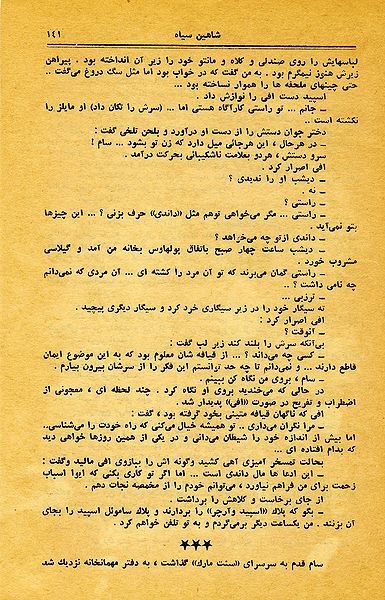 شاهین سیاه
۱۴۱
لباسهایش را روی صندلی و کلاه و مانتو خود را زیر آن انداخته بود . پیراهن
زیرش هنوز نیمگرم بود . به من گفت که در خواب بود اما مثل سگ دروغ می‌گفت ..
حتی چینهای ملحفه ها را هموار نساخته بود ...
اسپید دست افی را نوازش داد .
ـ جانم ... تو راستی کارآگاه هستی اما ... (سرش را تکان داد) او مایلز را
نکشته است ..
دختر جوان دستش را از دست او درآورد و بلحن تلخی گفت :
ـ در هرحال ، این هرجائی میل دارد که زن تو بشود ... سام !
سرو دستش ، هردو بعلامت ناشکیبائی بحرکت درآمد .
افی اصرار کرد .
ـ دیشب او را ندیدی ؟
ـ نه .
ـ راستی ؟
ـ راستی ... مگر می‌خواهی توهم مثل «داندی» حرف بزنی ؟ ... این چیزها
بتو نمی‌آید .
ـ داندی ازتو چه می‌خواهد ؟
ـ دیشب ساعت چهار صبح باتفاق پولهاوس بخانه من آمد و گیلاسی
مشروب خورد .
ـ راستی گمان می‌برند که تو آن مرد را کشته ای ... آن مردی که نمی‌دانم
چه نامی داشت ؟ ..
ـ ترزبی ...
ته سیگار خود را در زیر سیگاری خرد کرد و سیگار دیگری پیچید .
افی اصرار کرد :
ـ آنوقت ؟
بی‌آنکه سرش را بلند کند زیر لب گفت :
ـ کسی چه می‌داند ؟ ... از قیافه شان معلوم بود که به این موضوع ایمان
قاطع دارند ... و نمی‌دانم تا چه حد توانستم این فکر را از سرشان بیرون بیارم .
ـ سام ، بروی من نگاه کن ببینم .
در حالی که می‌خندید بروی او نگاه کرد . چند لحظه ای ، معجونی از
اضطراب و تفریح در صورت «افی» پدیدار شد .
افی که ناگهان قیافه متینی بخود گرفته بود ، گفت :
ـ مرا نگران می‌داری .. تو همیشه خیال می‌کنی که راه خودت را می‌شناسی...
اما بیش از اندازه خود را شیطان می‌دانی و در یکی از همین روزها خواهی دید
که بدام افتاده ای ...
بحالت تمسخر آمیزی آهی کشید وگونه اش را ببازوی افی مالید وگفت :
ـ این ادعا ها مال داندی است ... اما اگر تو کاری بکنی که ایوا اسباب
زحمت برای من فراهم نیاورد ، می‌توانم خودم را از مخمصه نجات دهم .
از جای برخاست و کلاهش را برداشت .
ـ بگو که پلاك «اسپید وآرچر» را بردارند و پلاك ساموئل اسپید را بجای
آن بزنند . من یکساعت دیگر برمی‌گردم و به تو تلفن خواهم کرد .
★★★
سام قدم به سرسرای «سنت مارك» گذاشت ، به دفتر مهمانخانه نزدیك شد